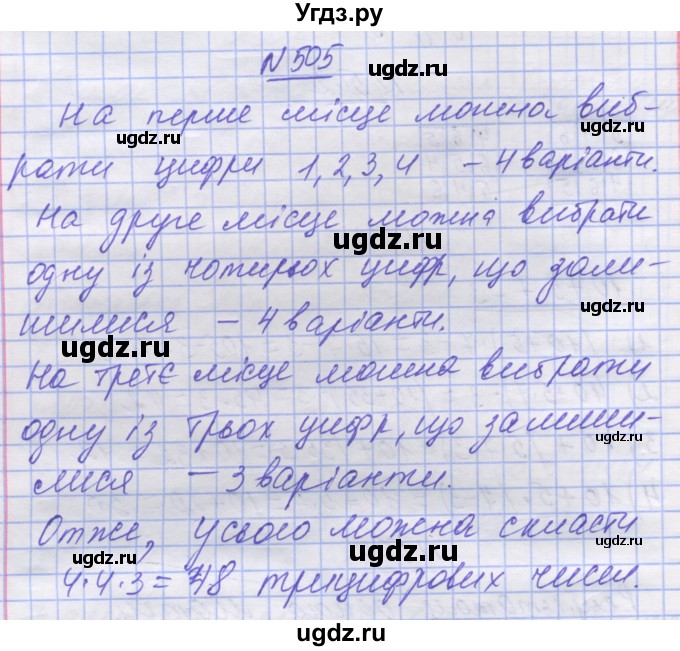 Угдз.ру
N 505
На перше місце можна виб-
рати цифри 1, 2, 3, 4 – 4 варіанти.
На друге місце можна вибрати
одну із чотирьох цифр, що зали-
шилися – 4 варіанти.
На третє місце можна вибрати
одну із трьох цифр, що залиши-
лися – 3 варіанти.
Отже, усього можна скласти
4·4·3 = 48 трицифрових чисел.
ugdz.ru
ugdz.ru
ugdz.ru
ugdz.ru
ugdz.ru
ugdz.ru
ugdz.ru
ugdz.ru
ugdz.ru
ugdz.ru
ugdz.ru
ugdz.ru
ugdz.ru